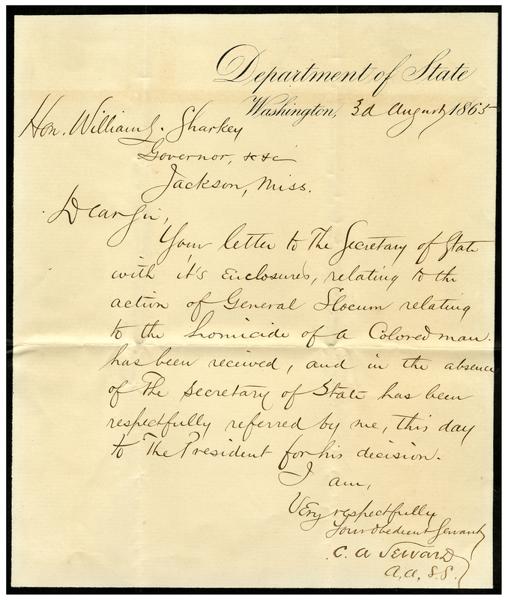 Department of State
Washington, 3d August 1865
Hon. William L. Sharkey
Governor, &c &c
Jackson, Miss.
Dear Sir,
Your letter to The Secretary of State
with it's enclosures, relating to the
action of General Slocum relating
to the homicide of a Colored man.
has been received, and in the absence
of The Secretary of State has been
respectfully referred by me, this day
to The President for his decision.
I am,
Very respectfully
Your obedient Servant
C. A Seward
A, A, S.S.